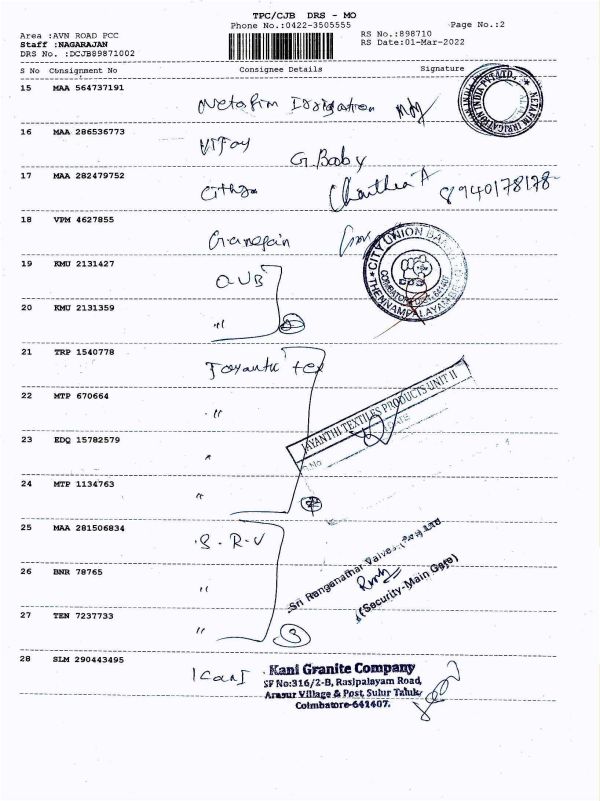 TPC/CJB DRS - MO
Phone No.:0422-3505555
Page No.:2
Area :AVN ROAD PCC
Staff :NAGARAJAN
DRS No. :DCJBS9871002
RS No.:898710
RS Date:01-Mar-2022
S No Consignment No Consignee Details Signature
15 MAA 564737191
Netafim Irrigation
NETAFIM IRRIGATION INDIA PVT LTD.
16 MAA 286536773
Vijay
G. Booby
17 MAA 282479752
8940178178
18 VPM 4627855
CITY UNION BANK
COIMBATORE 641 407
THENNAMPALAYAM
19 KMU 2131427
CUB
20 KMU 2131359
"
2
21 TRP 1540778
Jayanthi Tex
22 MTP 670664
"
JAYANTHI TEXTILES PRODUCTS UNIT II
DATE
23 EDQ 15782579
"
24 MTP 1134763
"
4
25 MAA 281506834
S. R. V
Sri Ranganathar Valves (P) Ltd
(Security-Main Gate)
26 BNR 78765
"
27 TEN 7237733
"
3
28 SLM 290443495
Kani
Kani Granite Company
SF No:316/2-B, Rasipalayam Road,
Arasur Village & Post, Sulur Taluk,
Coimbatore-641407.